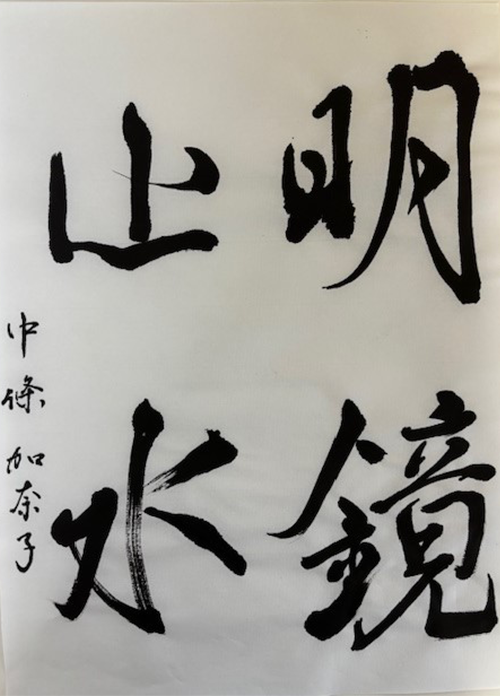 明鏡
止水
中條加奈子